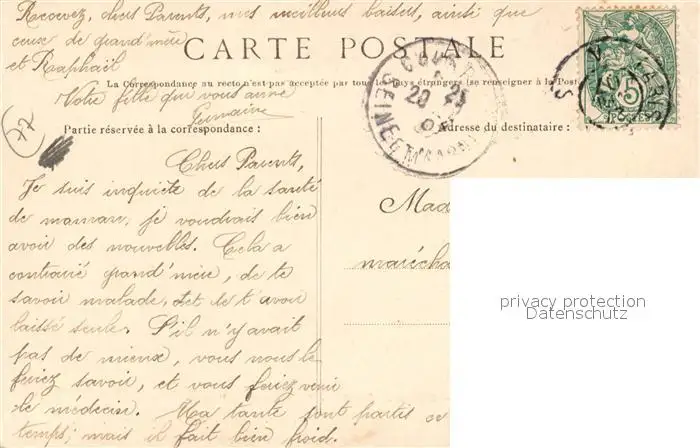 Recevez, chers Parents, mes meilleurs baisers, ainsi que
ceux de grand'mère
et Raphaël
CARTE POSTALE
La Correspondance au recto n'est pas acceptée par tous les pays étrangers (se renseigner à la Poste
Votre fille qui vous aime
Germaine
77
Partie réservée à la correspondance :
Adresse du destinataire :
Chers Parents,
Je suis inquiète de la santé
de maman, je voudrais bien
avoir des nouvelles. Cela a
contrarié grand'mère, de te
savoir malade, et de t'avoir
laissé seule. S'il n'y avait
pas de mieux, vous nous le
feriez savoir, et vous feriez venir
le médecin. Ma tante sont partis ce
temps; mais il fait bien froid.
Mad
marécha
SEINE-ET-MARNE
PARIS
5
privacy protection
Datenschutz